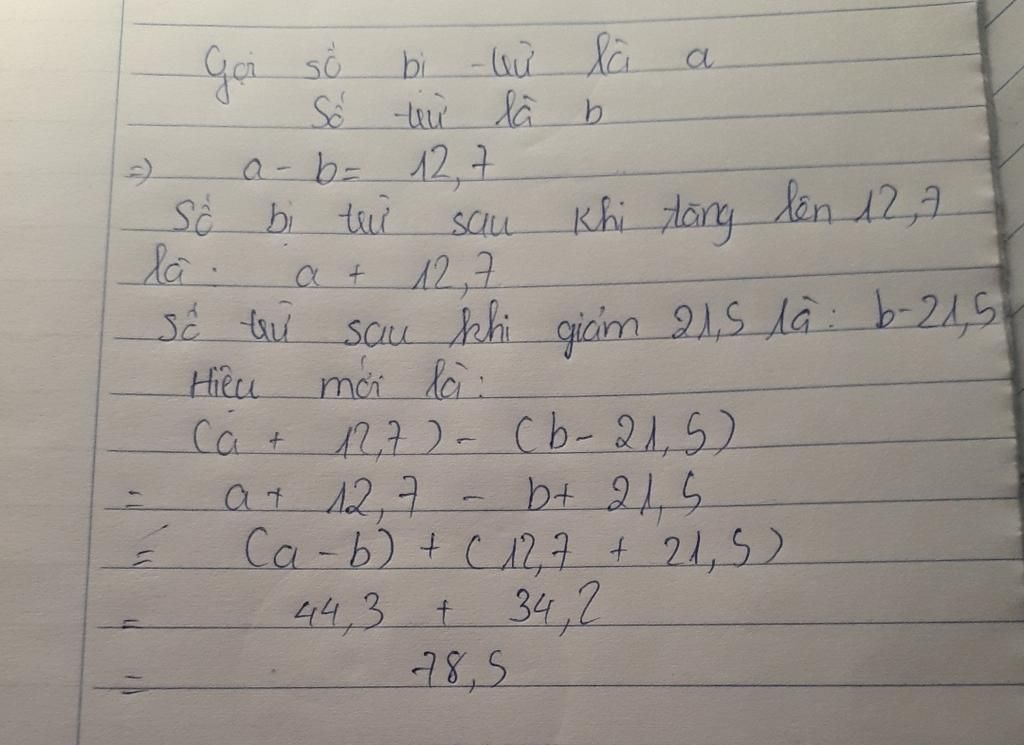 Gọi số bị trừ là a
Số trừ là b
=> a - b = 12,7
Số bị trừ sau khi tăng lên 12,7
là: a + 12,7
Số trừ sau khi giảm 21,5 là: b - 21,5
Hiệu mới là:
(a + 12,7) - (b - 21,5)
= a + 12,7 - b + 21,5
= (a - b) + (12,7 + 21,5)
= 44,3 + 34,2
= 78,5